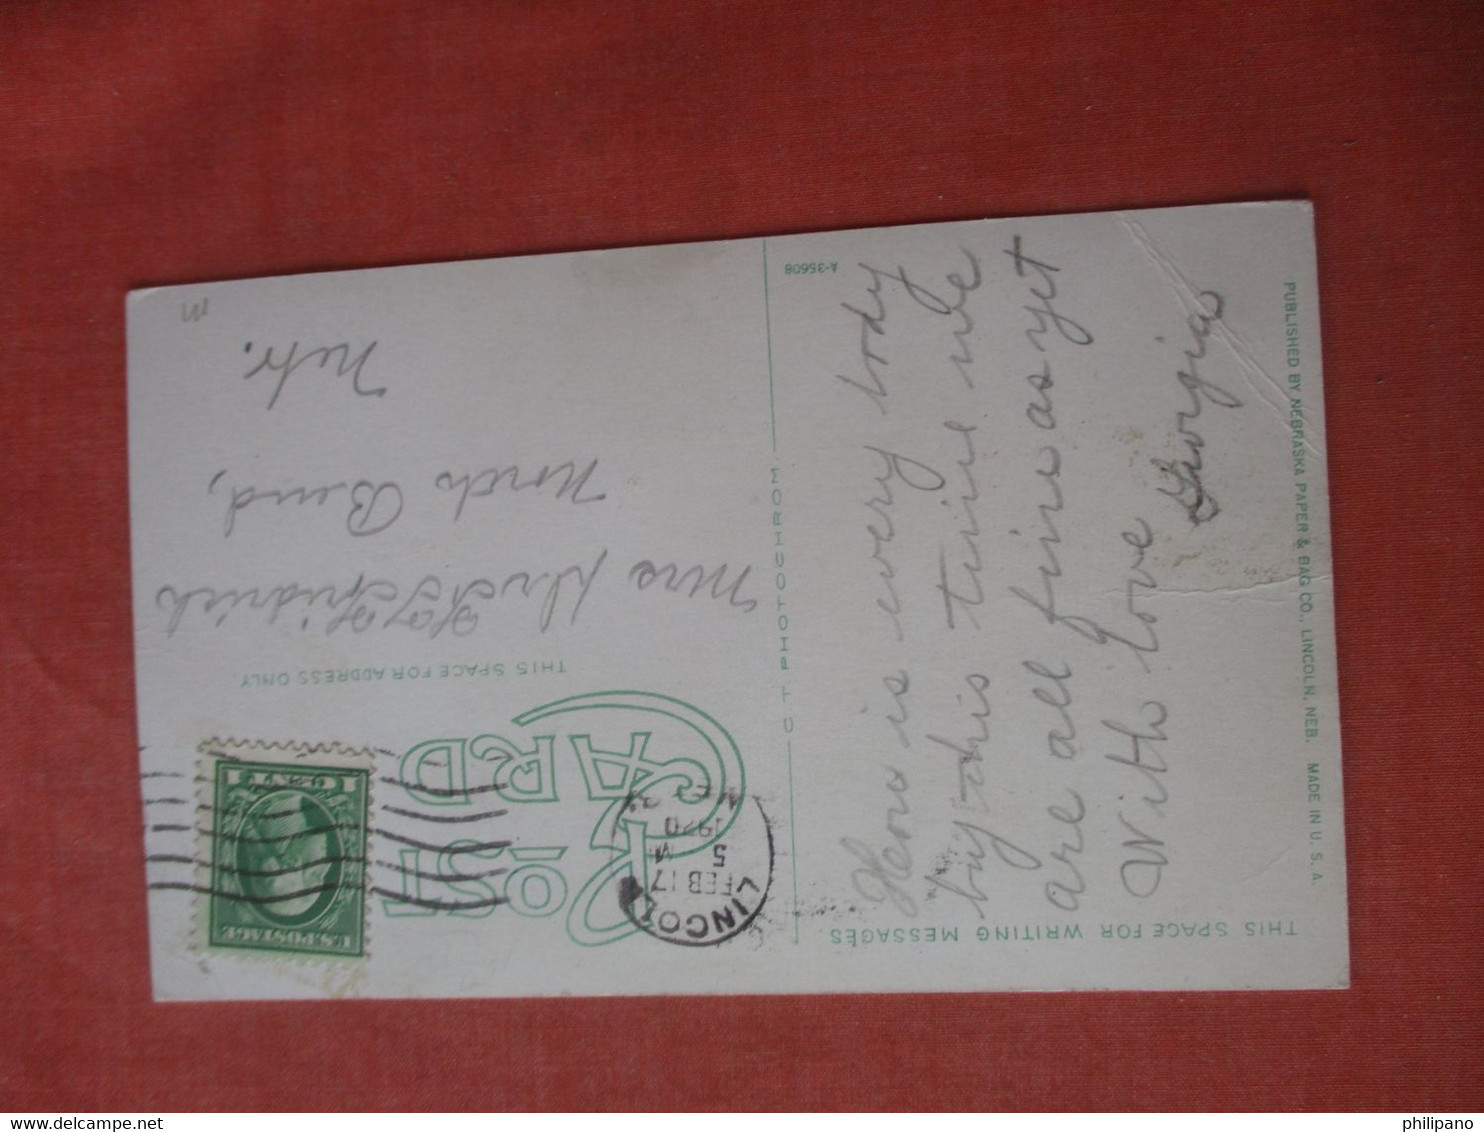 THIS SPACE FOR WRITING MESSAGES
How is every body
by this time we
are all fine as yet
With love
Georgia
PUBLISHED BY NEBRASKA PAPER & BAG CO., LINCOLN, NEB. MADE IN U. S. A.
A-35608
C T PHOTOCHROM
POST CARD
THIS SPACE FOR ADDRESS ONLY.
LINCOL
FEB 17
5 M
1920
U.S. POSTAGE
1 1
Mrs
North Bend,
Nebr.
m
philipano